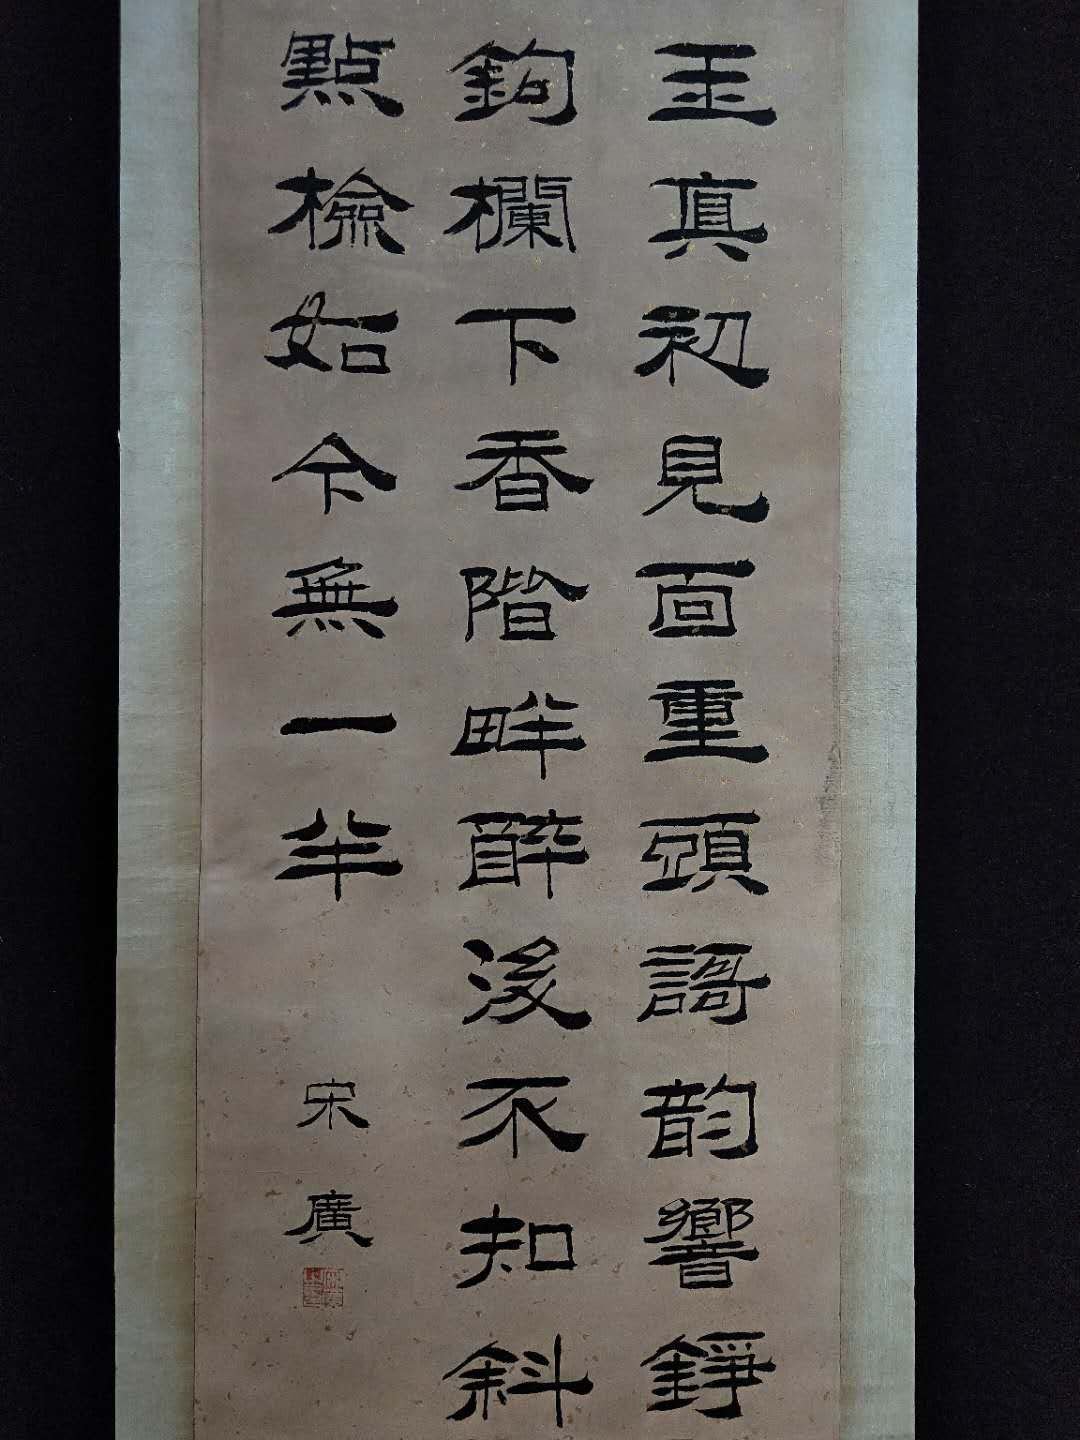 玉真初見面重頭謌韵響錚
鉤欄下香階畔醉後不知斜
點檢如今無一半
宋廣